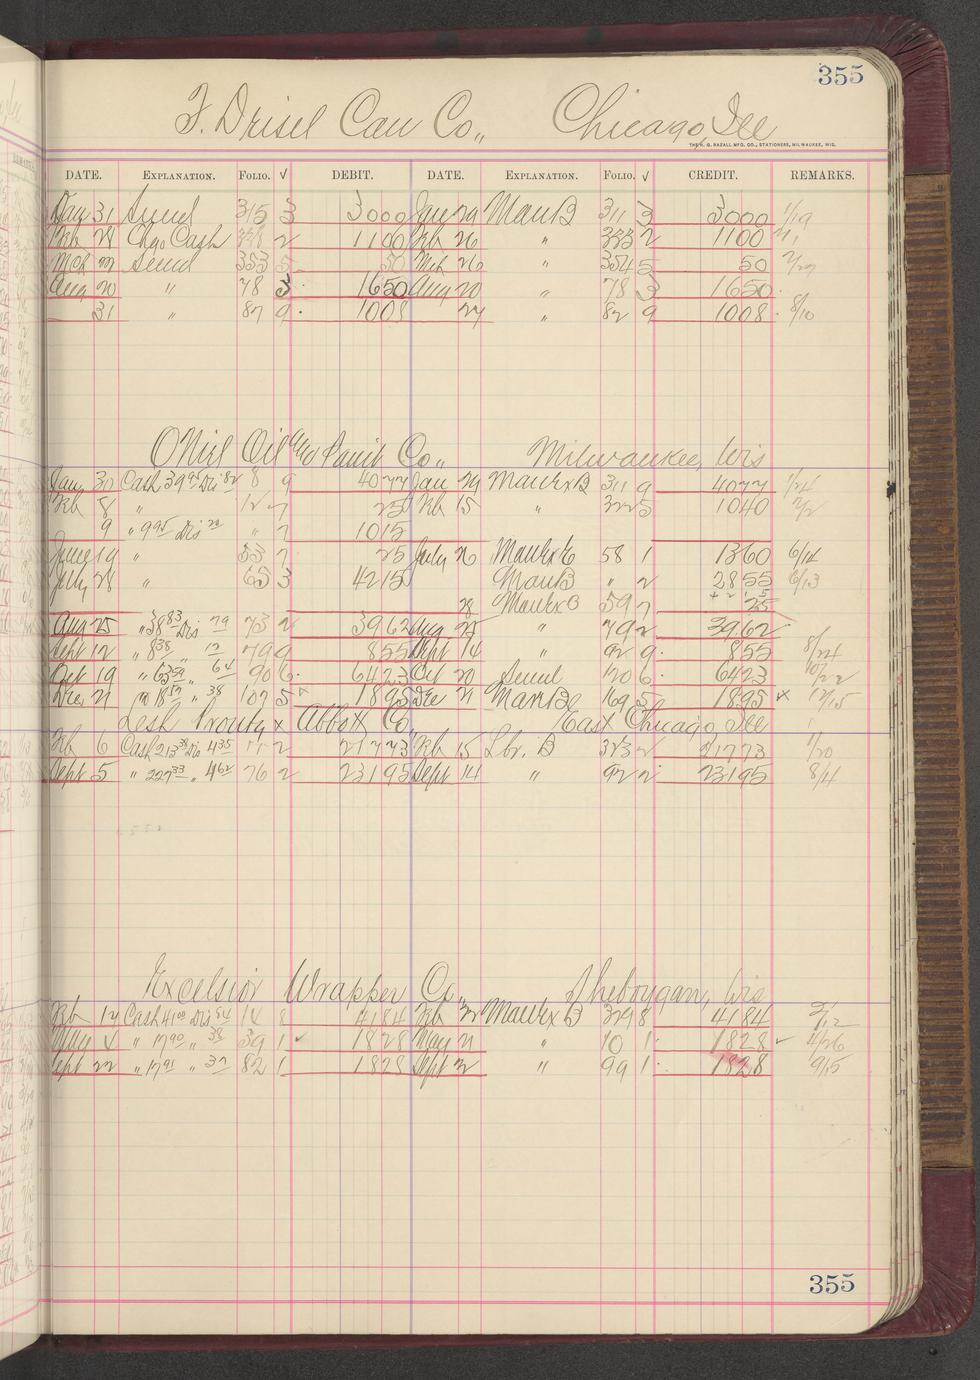 355
F. Drisel Can Co., Chicago, Ill
THE H. G. RAZALL MFG. CO., STATIONERS, MILWAUKEE, WIS.
DATE. EXPLANATION. FOLIO. √ DEBIT. DATE. EXPLANATION. FOLIO. √ CREDIT. REMARKS.
Jan 31 315 3 3000 Jan 29 Man B 311 3 3000 1/19
Feb 28 Chgo Cash 2 1100 Feb 26 " 333 2 1100
Mch 353 5 50 Mch 26 " 354 5 50
Aug 20 " 78 3 1650 Aug 20 " 78 3 1650
31 " 87 9 1008 27 " 82 9 1008 8/10
Oil and Paint Co., Milwaukee, Wis
Jan 30 Cash 39 95 Dis 82 8 9 4077 Jan 29 311 9 4077 1/24
Feb 8 " 12 7 25 Feb 15 " 325 1040 2/2
9 " 9 95 Dis 20 " 7 1015
June 19 " 53 7 25 July 26 58 1 1360 6/14
July 28 " 65 3 4215 Man B " 2 2855 6/13
28 59 7 25
Aug 25 " 38 83 Dis 79 73 2 3962 Aug 27 " 79 2 3962
Sept 12 " 8 38 " 17 79 9 855 Sept 14 " 92 9 855 8/24
Oct 19 " 63 59 " 64 90 6 6423 Oct 20 120 6 6423 10/22
Dec 21 " 18 57 " 38 107 5 1895 Dec 21 169 5 1895 12/15
Lesh Prouty & Abbott Co., East Chicago, Ill
Feb 6 Cash 213 38 Dis 4 35 2 21773 Feb 15 Lbr. B 323 2 21773 1/20
Sept 5 " 227 33 " 4 62 76 2 23195 Sept 14 " 92 2 23195 8/4
Excelsior Wrapper Co., Sheboygan, Wis
Feb 14 Cash 41 00 Dis 84 14 8 4184 Feb 329 8 4184 2/12
May 4 " 17 90 " 38 39 1 1828 May 21 " 70 1 1828 4/26
Sept 22 " 17 91 " 37 82 1 1828 Sept " 99 1 1828 9/15
355